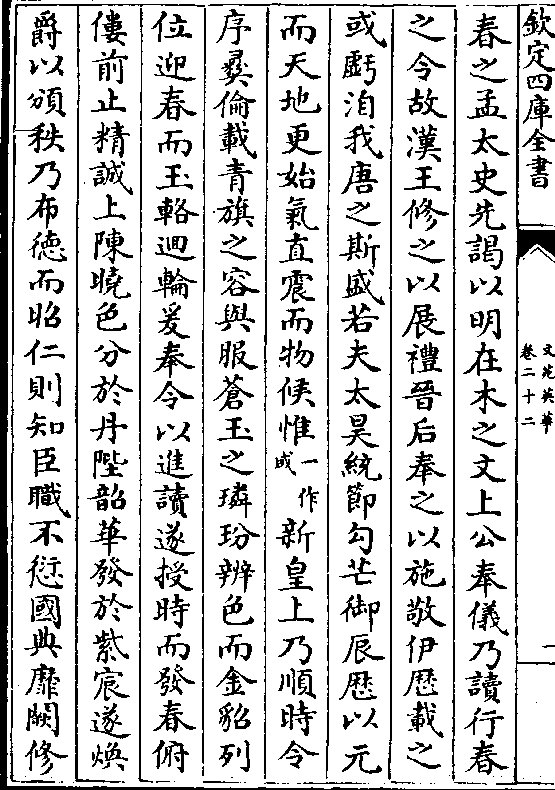 欽定四庫全書
文苑英華
卷二十二
一
春之孟太史先謁以明在木之文上公奉儀乃讀行春
之令故漢王修之以展禮晉后奉之以施敬伊歴載之
或虧洎我唐之斯盛若夫太昊統節勾芒御辰歴以元
而天地更始氣直震而物候惟一作成新皇上乃順時令
序彞倫載青旗之容與服蒼玉之璘玢辨色而金貂列
位迎春而玉輅迴輪爰奉令以進讀遂授時而發春俯
僂前止精誠上陳曉色分於丹陛韶華發於紫宸遂煥
爵以頒秩乃布徳而昭仁則知臣職不愆國典靡闕修